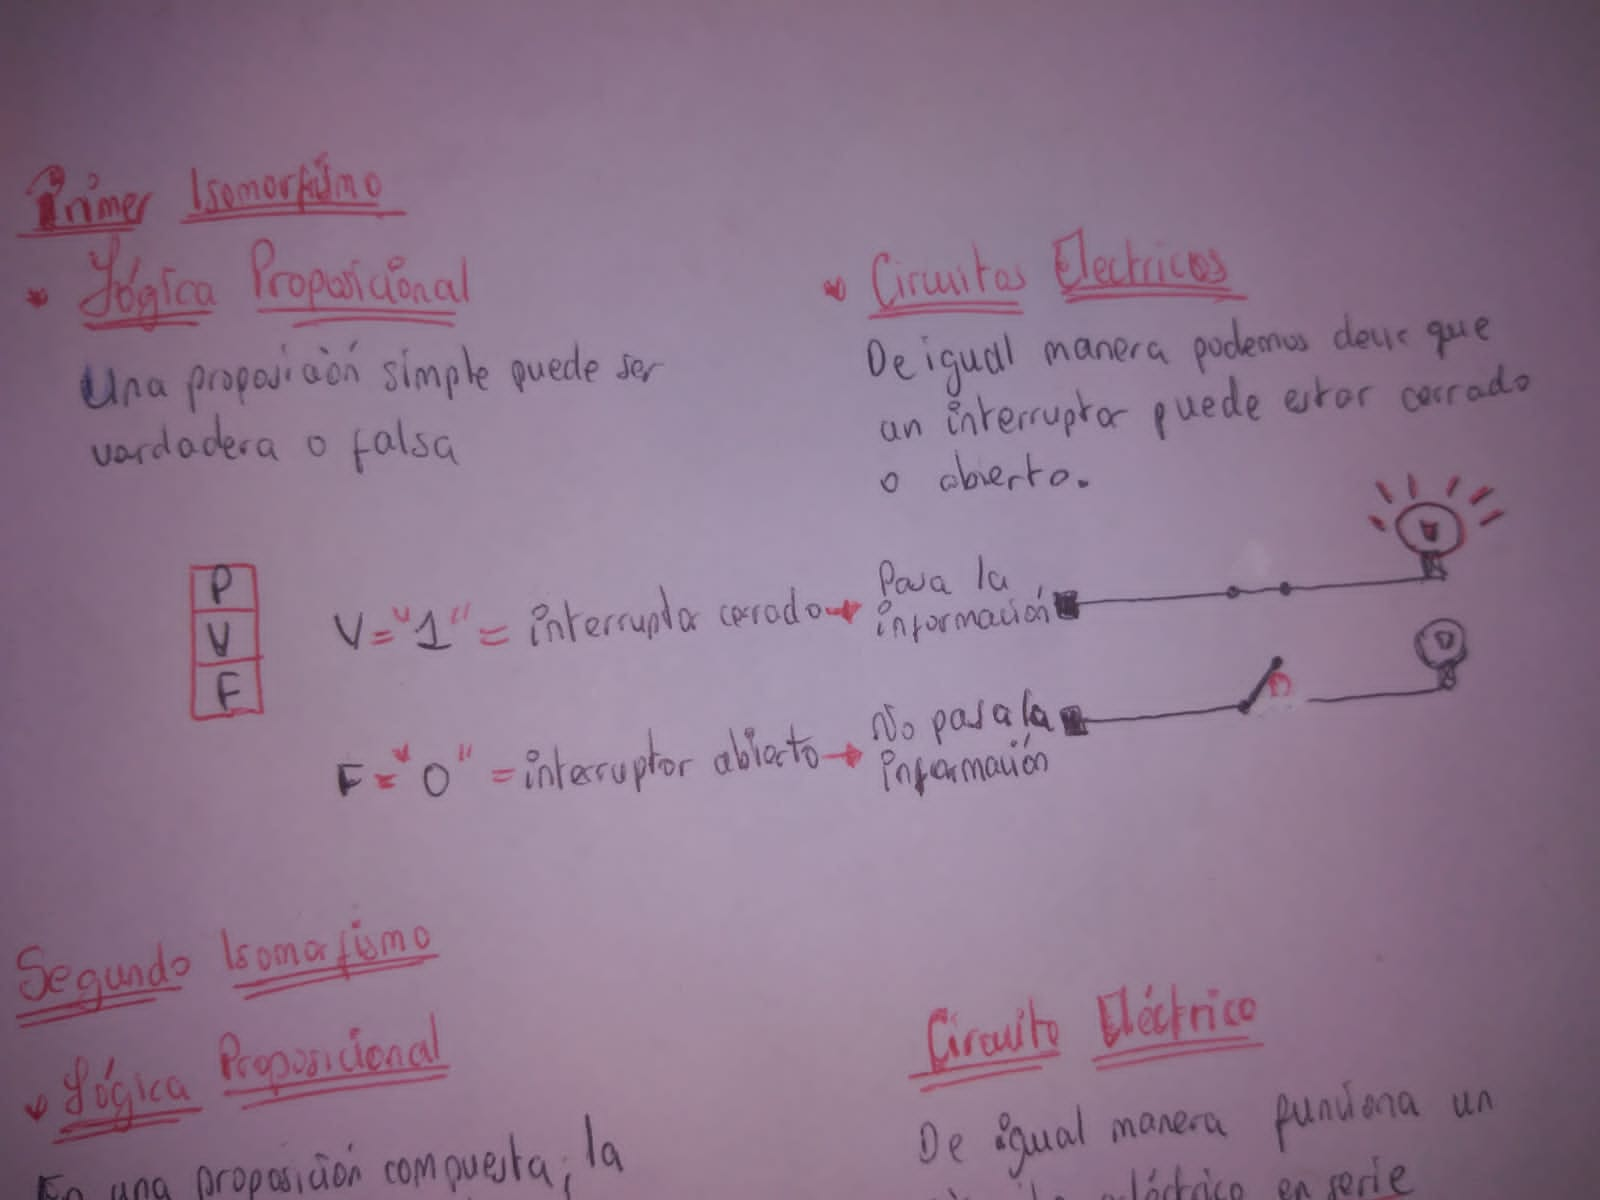 Primer Isomorfismo
Lógica Proposicional
Una proposición simple puede ser
verdadera o falsa
Circuitos Electricos
De igual manera podemos decir que
un interruptor puede estar cerrado
o abierto.
P
V
F
V = "1" = interruptor cerrado → Pasa la
información
F = "0" = interruptor abierto → No pasa la
información
Segundo Isomorfismo
Lógica Proposicional
En una proposición compuesta, la
Circuito Eléctrico
De igual manera funciona un
eléctrico en serie